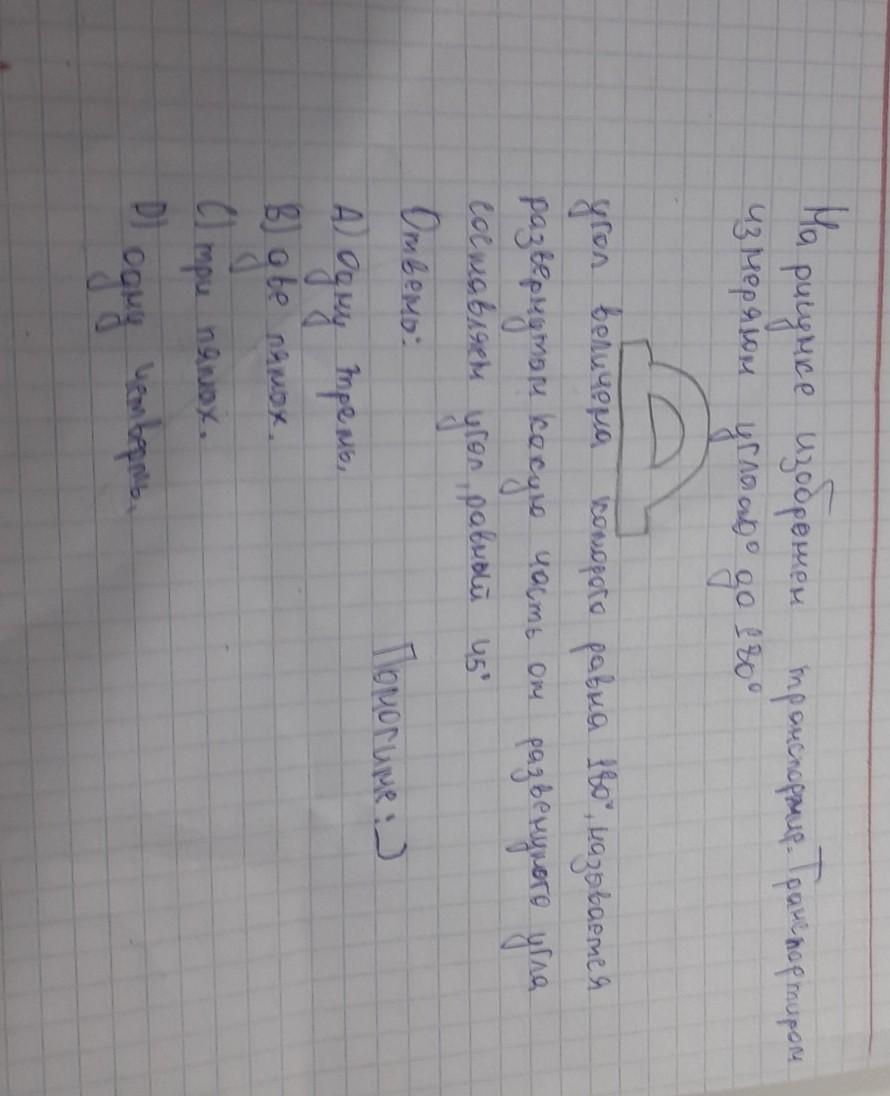 На рисунке изображен транспортир. Транспортиром
измеряют углы от 0° до 180°
угол величена которого равна 180°, называется
развернутом какую часть от развенутого угла
составляет угол, равный 45°
Ответь:
A) одну треть,
B) две пятох.
C) три пятох.
D) одну четверть.
Помогите :_)